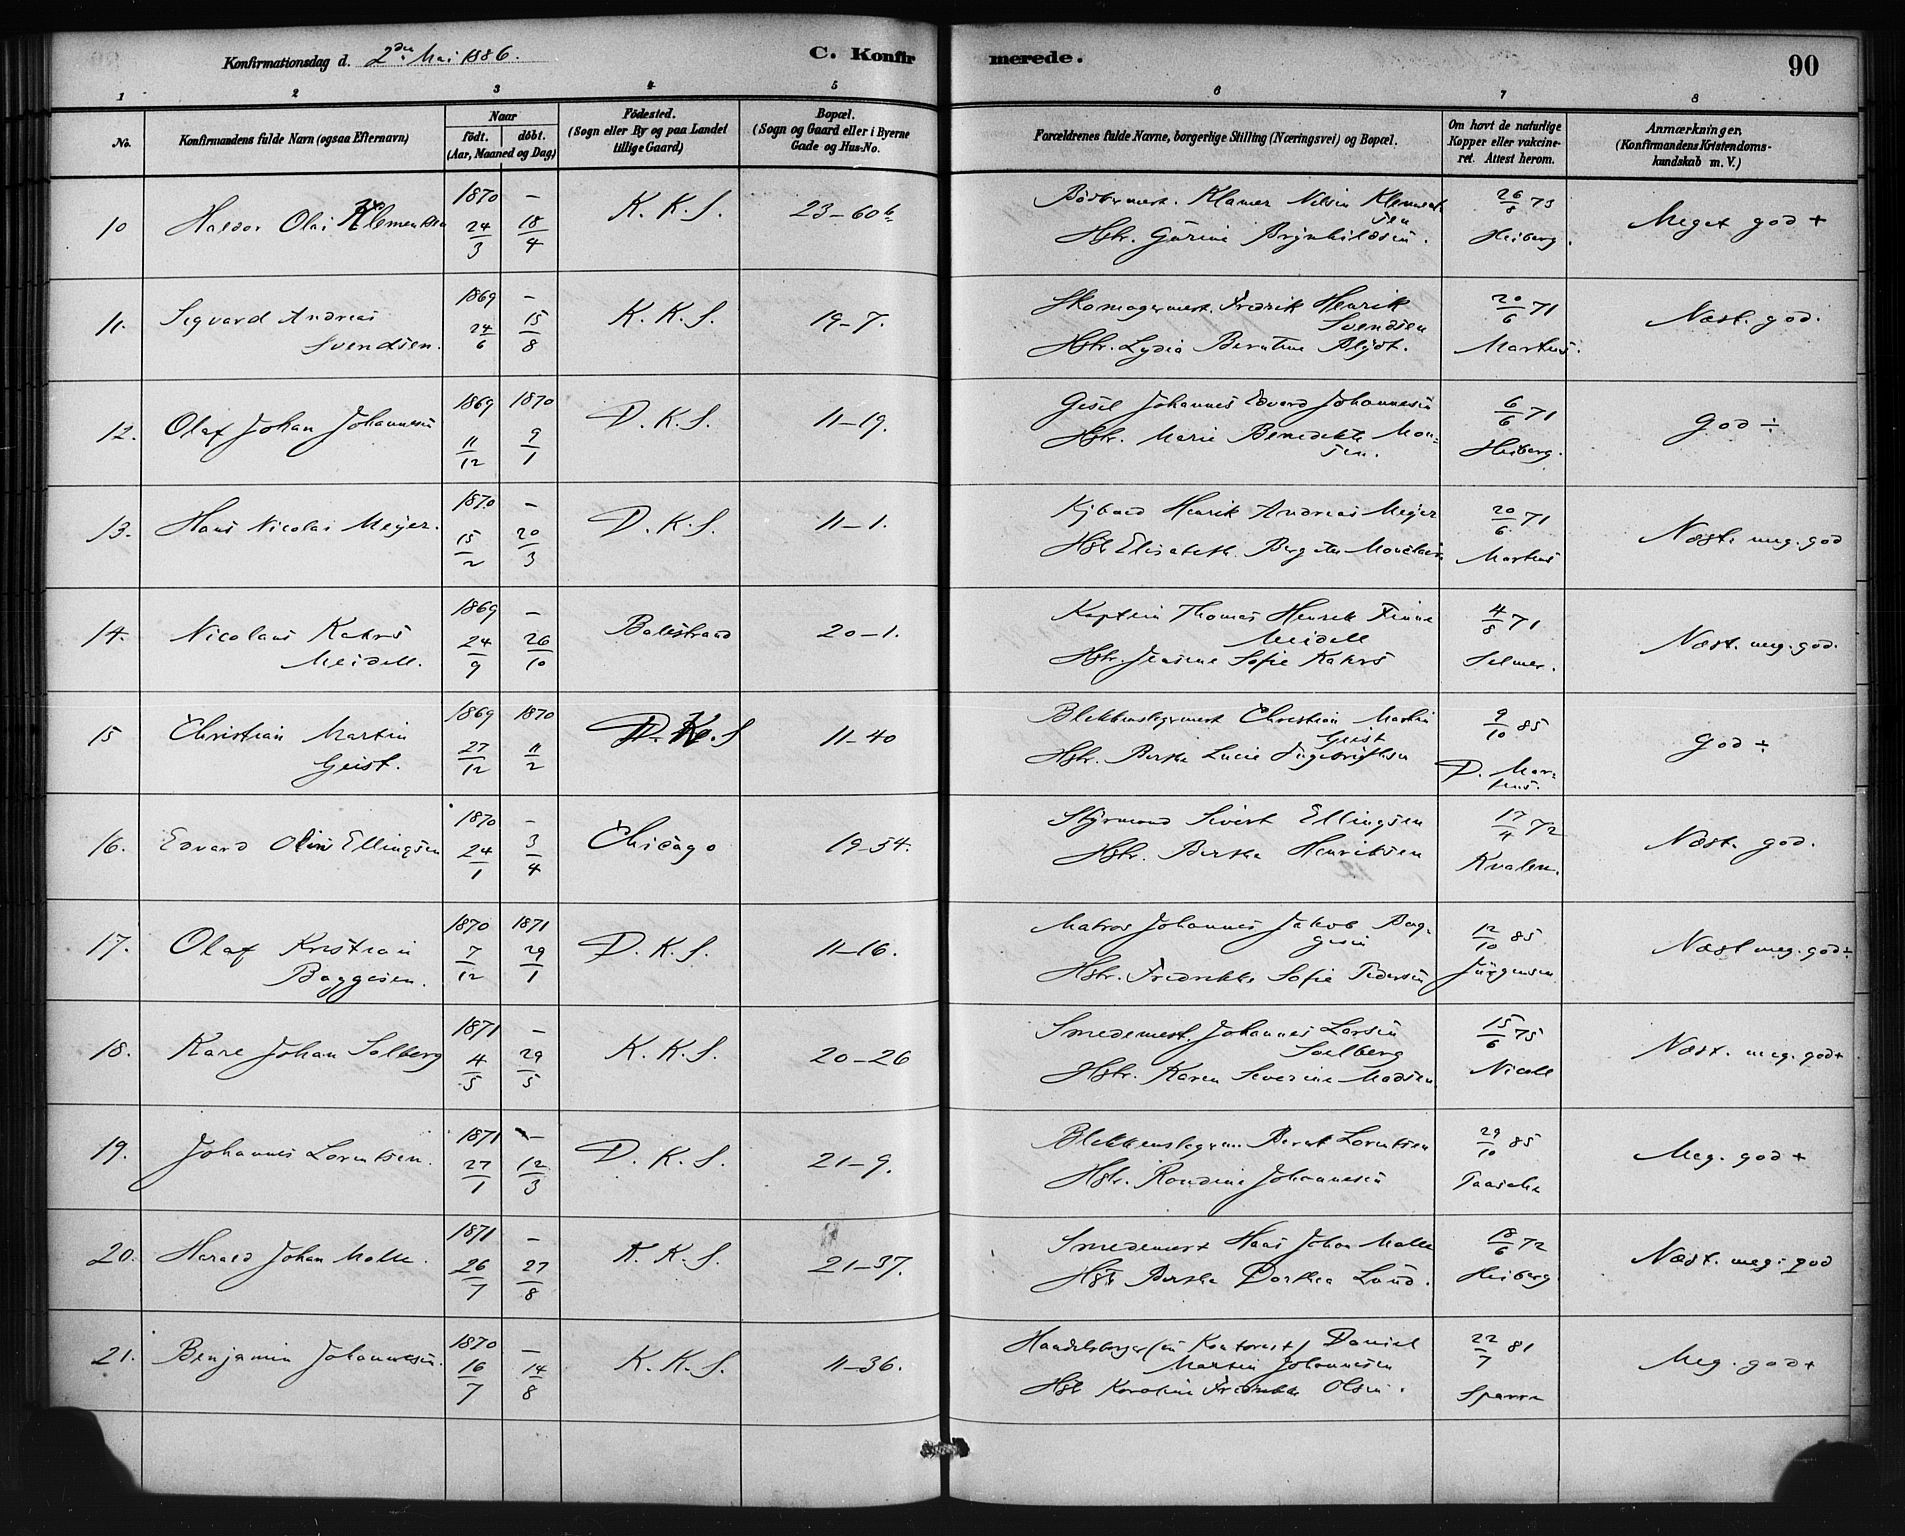 Konfirmationsdag d. 2den Mai 1886.
C. Konfirmerede.
90
1 2 3 4 5 6 7 8
No.
Konfirmandens fulde Navn (ogsaa Efternavn)
Naar
født. døbt.
(Aar, Maaned og Dag)
Fødested.
(Sogn eller By og paa Landet
tillige Gaard)
Bopæl.
(Sogn og Gaard eller i Byerne
Gade og Hus-No.
Forældrenes fulde Navne, borgerlige Stilling (Næringsvei) og Bopæl.
Om havt de naturlige
Kopper eller vakcine-
ret. Attest herom.
Anmærkninger,
(Konfirmandens Kristendoms-
kundskab m. V.)
10 Haldor Olai Klementsen 1870 24/3 – 18/4 K. K. S. 23–60b
Klamer Nilsen Klement
sen
Hstr. Gurine Brynhildsen.
26/8 73
Heiberg.
Meget god +
11. Sigvard Andreas
Svendsen.
1869 24/6 – 15/8 K. K. S. 19–7.
Skomagermest. Fredrik Henrik
Svendsen
Hstr. Lydia Berntine Blydt.
20/6 71
Martens.
Næst. god.
12. Olaf Johan Johannesen 1869 11/12 1870 9/1 D. K. S. 11–19.
Gesel Johannes Edvard Johannesen
Hstr. Marie Benedikte Mon-
sen.
6/6 71
Heiberg.
god ÷
13. Hans Nicolai Meyer. 1870 15/2 – 20/3 D. K. S. 11–1.
Henrik Andreas Meyer
Hstr Elisabeth
20/6 71
Martens
Næst. meg. god
14. Nicolaus Kahrs
Meidell.
1869 24/9 – 26/10 Balestrand 20–1.
Kaptein Thomas Henrik Finne
Meidell
Hstr. Jensine Sofie Kahrs
4/8 71
Selmer.
Næst. meg. god.
15 Christian Martin
Geist.
1869 27/12 1870 11/2 D. K. S 11–40
Blikkenslagermest Christian Martin
Geist
Hstr. Berthe Lucie Ingebrigtsen
9/10 85
D. Mar-
tens.
god ÷
16. Edvard Olin Ellingsen 1870 24/1 – 3/4 Chicago 19–54.
Styrmand Sivert Ellingsen
Hstr. Berthe Henriksen
17/4 72
Kvalen.
Næst. god.
17. Olaf Kristian
Baggesen.
1870 7/12 1871 29/1 D. K. S. 11–16.
Matros Johannes Jakob Bag-
gesen
Hstr. Fredrikke Sofie Pedersen
12/10 85
Jürgensen
Næst meg. god ÷
18. Kare Johan Solberg 1871 4/5 – 29/5 K. K. S. 20–26
Smedemest. Johannes Larsen
Soelberg
Hstr. Karen Severine Madsen
15/6 75
Nicoll
Næst. meg. god +
19. Johannes Lorentsen. 1871 27/1 – 12/3 D. K. S. 21–9.
Bernt Lorentsen
Hstr. Rondine Johannesen
29/10 85
Meg. god +
20. Harald Johan Malte. 1871 26/7 – 27/8 K. K. S. 21–37.
Smedemest Hans Johan Malte
Hstr Berthe Dorthea Lund.
18/6 72
Heiberg
Næst. meg. god
21. Benjamin Johannesen. 1870 16/7 – 14/8 K. K. S. 11–36.
Handelsborger (nu Kontorist) Daniel
Martin Johannesen
Hstr Karoline Fredrikke Olsen.
22/7 81
Sparre
Meg. god +